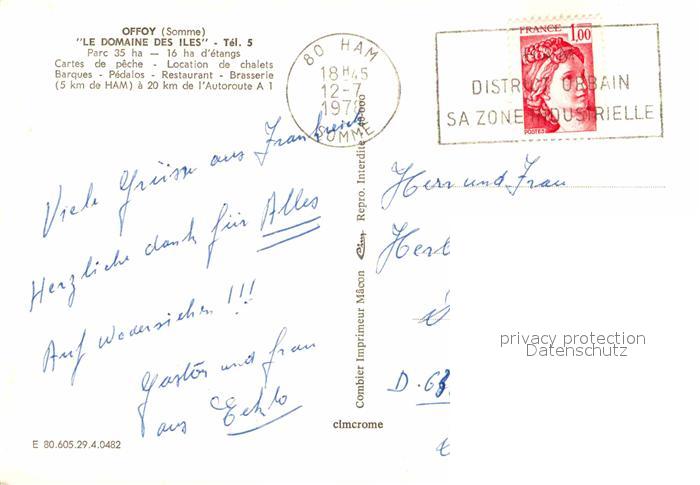 OFFOY (Somme)
"LE DOMAINE DES ILES" - Tél. 5
Parc 35 ha — 16 ha d'étangs
Cartes de pêche - Location de chalets
Barques - Pédalos - Restaurant - Brasserie
(5 km de HAM) à 20 km de l'Autoroute A 1
80 HAM
18H45
12-7
1978
SOMME
FRANCE 1,00
POSTES
DISTRICT URBAIN
SA ZONE INDUSTRIELLE
Viele Grüsse aus Frankreich
Herzliche dank für Alles
Auf Wedersiehen !!!
Gaston und frau
aus Eeklo
Herr und Frau
Her
D.63
Combier Imprimeur Mâcon Cim Repro. Interdite
cimcrome
E 80.605.29.4.0482
privacy protection
Datenschutz